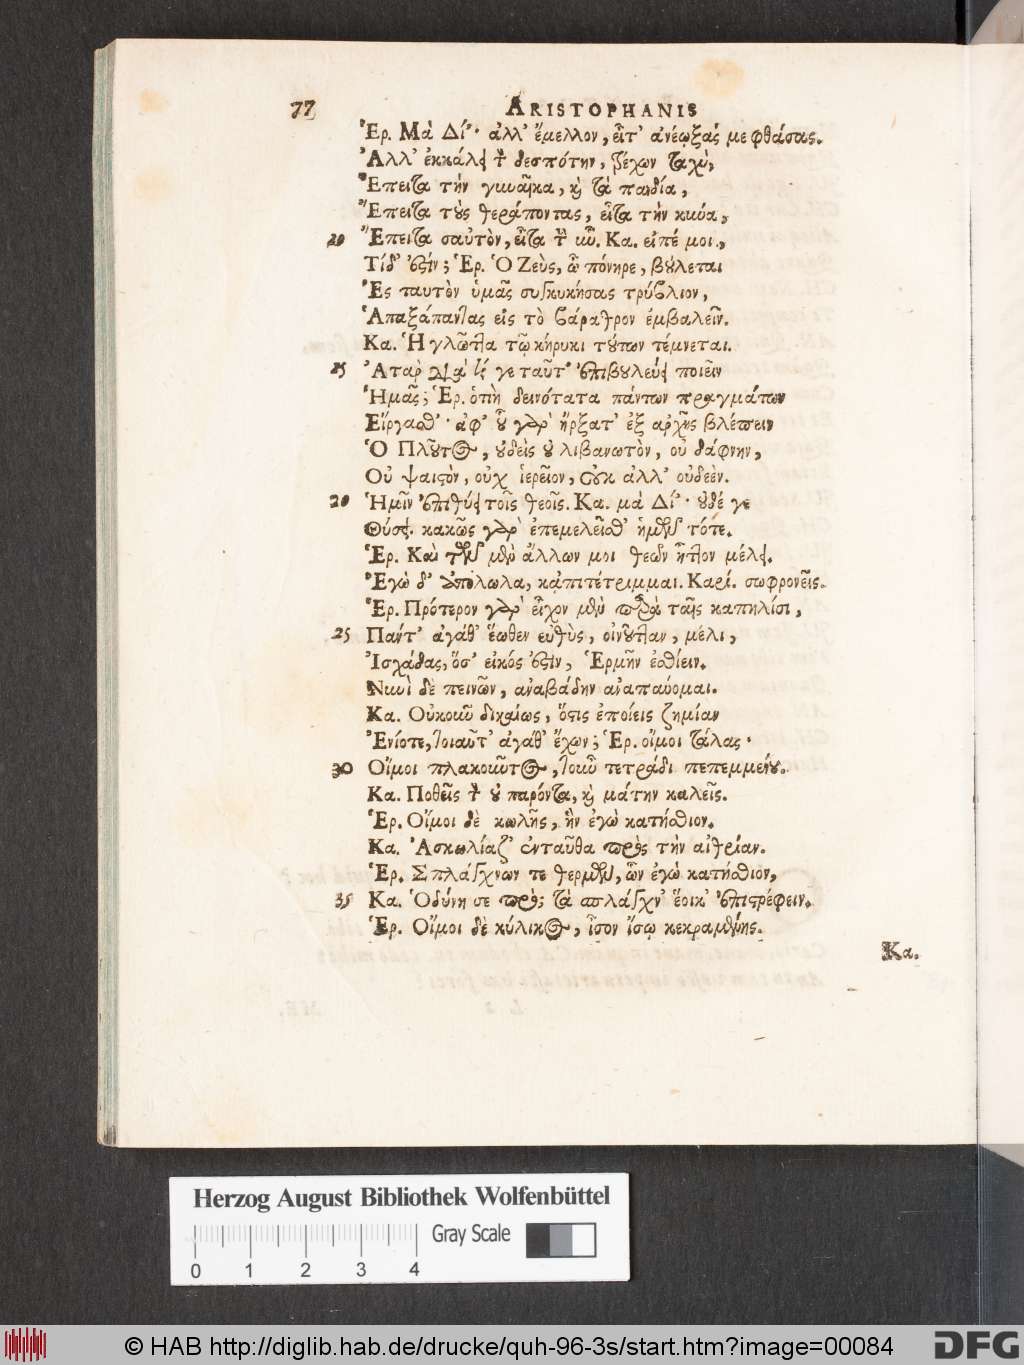 77 ARISTOPHANIS
Ἑρ. Μὰ Δί'· ἀλλ' ἔμελλον, εἶτ' ἀνέῳξάς με φθάσας.
Ἀλλ' ἐκκάλει τὸν δεσπότην, τρέχων ταχὺ,
Ἔπειτα τὴν γυναῖκα, καὶ τὰ παιδία,
Ἔπειτα τοὺς θεράποντας, εἶτα τὴν κύνα,
10 Ἔπειτα σαυτὸν, εἶτα τὴν ὗν. Κα. εἰπέ μοι,
Τί δ' ἐστίν; Ἑρ. Ὁ Ζεὺς, ὦ πόνηρε, βούλεται
Ἐς ταυτὸν ὑμᾶς συγκυκήσας τρύβλιον,
Ἁπαξάπαντας εἰς τὸ βάραθρον ἐμβαλεῖν.
Κα. Ἡ γλῶττα τῷ κήρυκι τούτων τέμνεται.
15 Ἀτὰρ διὰ τί γε ταῦτ' ἐπιβουλεύει ποιεῖν
Ἡμᾶς; Ἑρ. ὁτιὴ δεινότατα πάντων πραγμάτων
Εἴργασθ'· ἀφ' οὗ γὰρ ἤρξατ' ἐξ ἀρχῆς βλέπειν
Ὁ Πλοῦτος, οὐδεὶς οὐ λιβανωτὸν, οὐ δάφνην,
Οὐ ψαιστὸν, οὐχ ἱερεῖον, οὐκ ἀλλ' οὐδεὲν.
20 Ἡμῖν ἐπιθύει τοῖς θεοῖς. Κα. μὰ Δί'· οὐδέ γε
Θύσει. κακῶς γὰρ ἐπεμελεῖσθ' ἡμῶν τότε.
Ἑρ. Καὶ τῶν μὲν ἄλλων μοι θεῶν ἧττον μέλει.
Ἐγὼ δ' ἀπόλωλα, κἀπιτέτριμμαι. Καρί. σωφρονεῖς.
Ἑρ. Πρότερον γὰρ εἶχον μὲν παρὰ ταῖς καπηλίσι,
25 Πάντ' ἀγάθ' ἕωθεν εὐθὺς, οἰνοῦτταν, μέλι,
Ἰσχάδας, ὅσ' εἰκός ἐστὶν, Ἑρμῆν ἐσθίειν.
Νυνὶ δὲ πεινῶν, ἀναβάδην ἀναπαύομαι.
Κα. Οὐκοῦν δικαίως, ὅστις ἐποίεις ζημίαν
Ἐνίοτε, τοιαῦτ' ἀγάθ' ἔχων; Ἑρ. οἴμοι τάλας·
30 Οἴμοι πλακοῦντος, τοῦν τετράδι πεπεμμένου.
Κα. Ποθεῖς τὸν οὐ παρόντα, καὶ μάτην καλεῖς.
Ἑρ. Οἴμοι δὲ κωλῆς, ἣν ἐγὼ κατήσθιον.
Κα. Ἀσκωλίαζ' ἐνταῦθα πρὸς τὴν αἰθρίαν.
Ἑρ. Σπλάγχνων τε θερμῶν, ὧν ἐγὼ κατήσθιον,
35 Κα. Ὀδύνη σε πρὸς τὰ σπλάγχν' ἔοικ' ἐπιστρέφειν.
Ἑρ. Οἴμοι δὲ κύλικος, ἴσον ἴσῳ κεκραμένης.
Κα.
Herzog August Bibliothek Wolfenbüttel
Gray Scale
0 1 2 3 4
© HAB http://diglib.hab.de/drucke/quh-96-3s/start.htm?image=00084
DFG